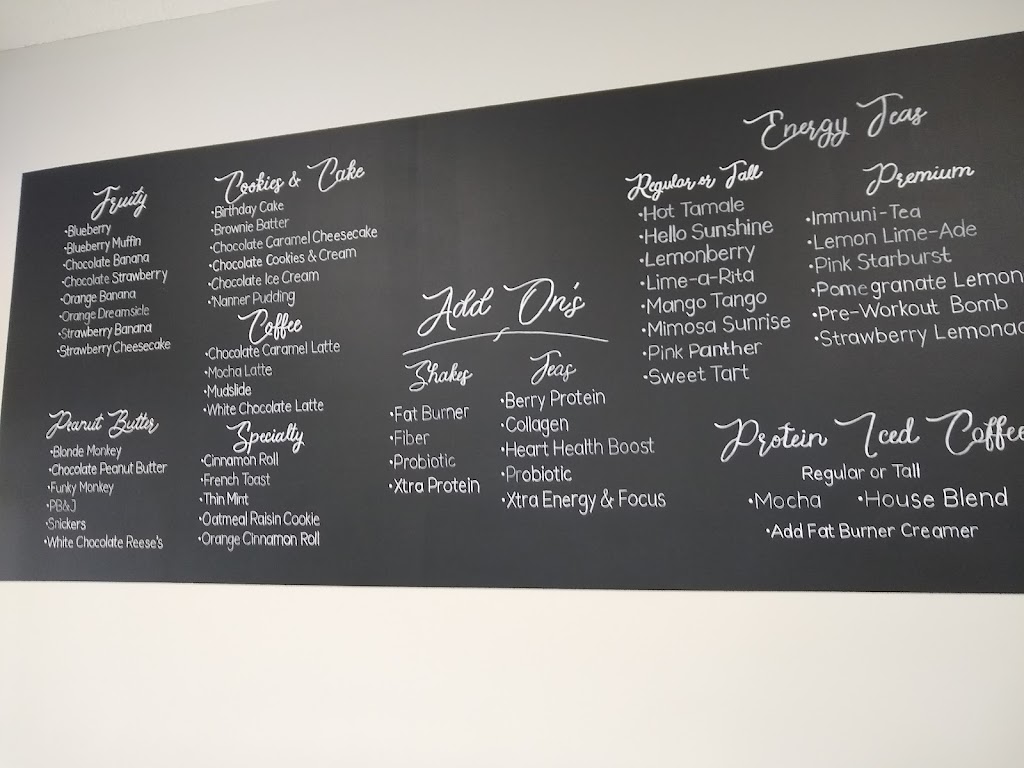 Fruity
•Blueberry
•Blueberry Muffin
•Chocolate Banana
•Chocolate Strawberry
•Orange Banana
•Orange Dreamsicle
•Strawberry Banana
•Strawberry Cheesecake
Peanut Butter
•Blonde Monkey
•Chocolate Peanut Butter
•Funky Monkey
•PB&J
•Snickers
•White Chocolate Reese's
Cookies & Cake
•Birthday Cake
•Brownie Batter
•Chocolate Caramel Cheesecake
•Chocolate Cookies & Cream
•Chocolate Ice Cream
•Nanner Pudding
Coffee
•Chocolate Caramel Latte
•Mocha Latte
•Mudslide
•White Chocolate Latte
Specialty
•Cinnamon Roll
•French Toast
•Thin Mint
•Oatmeal Raisin Cookie
•Orange Cinnamon Roll
Add On's
Shakes
•Fat Burner
•Fiber
•Probiotic
•Xtra Protein
Teas
•Berry Protein
•Collagen
•Heart Health Boost
•Probiotic
•Xtra Energy & Focus
Energy Teas
Regular or Tall
•Hot Tamale
•Hello Sunshine
•Lemonberry
•Lime-a-Rita
•Mango Tango
•Mimosa Sunrise
•Pink Panther
•Sweet Tart
Premium
•Immuni-Tea
•Lemon Lime-Ade
•Pink Starburst
•Pomegranate Lemon
•Pre-Workout Bomb
•Strawberry Lemonad
Protein Iced Coffee
Regular or Tall
•Mocha •House Blend
•Add Fat Burner Creamer